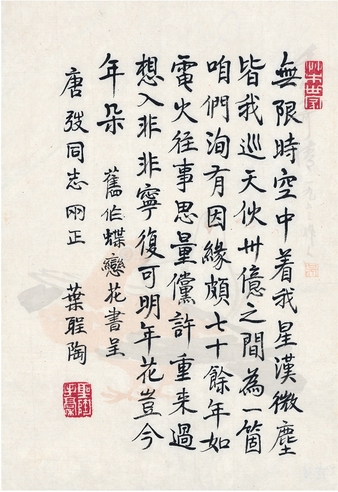 無限時空中着我星漢微塵
皆我巡天伙卅億之間為一箇
咱們洵有因緣頗七十餘年如
電火往事思量儻許重来過
想入非非寧復可明年花豈今
年朵 舊作蝶戀花書呈
唐弢同志吲正 葉聖陶